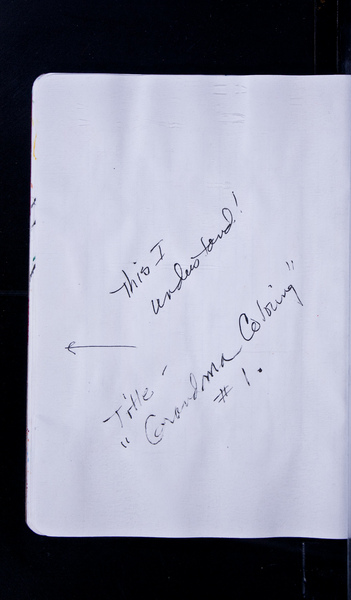 This I
understand!
Title -
"Grandma Coloring"
# 1.